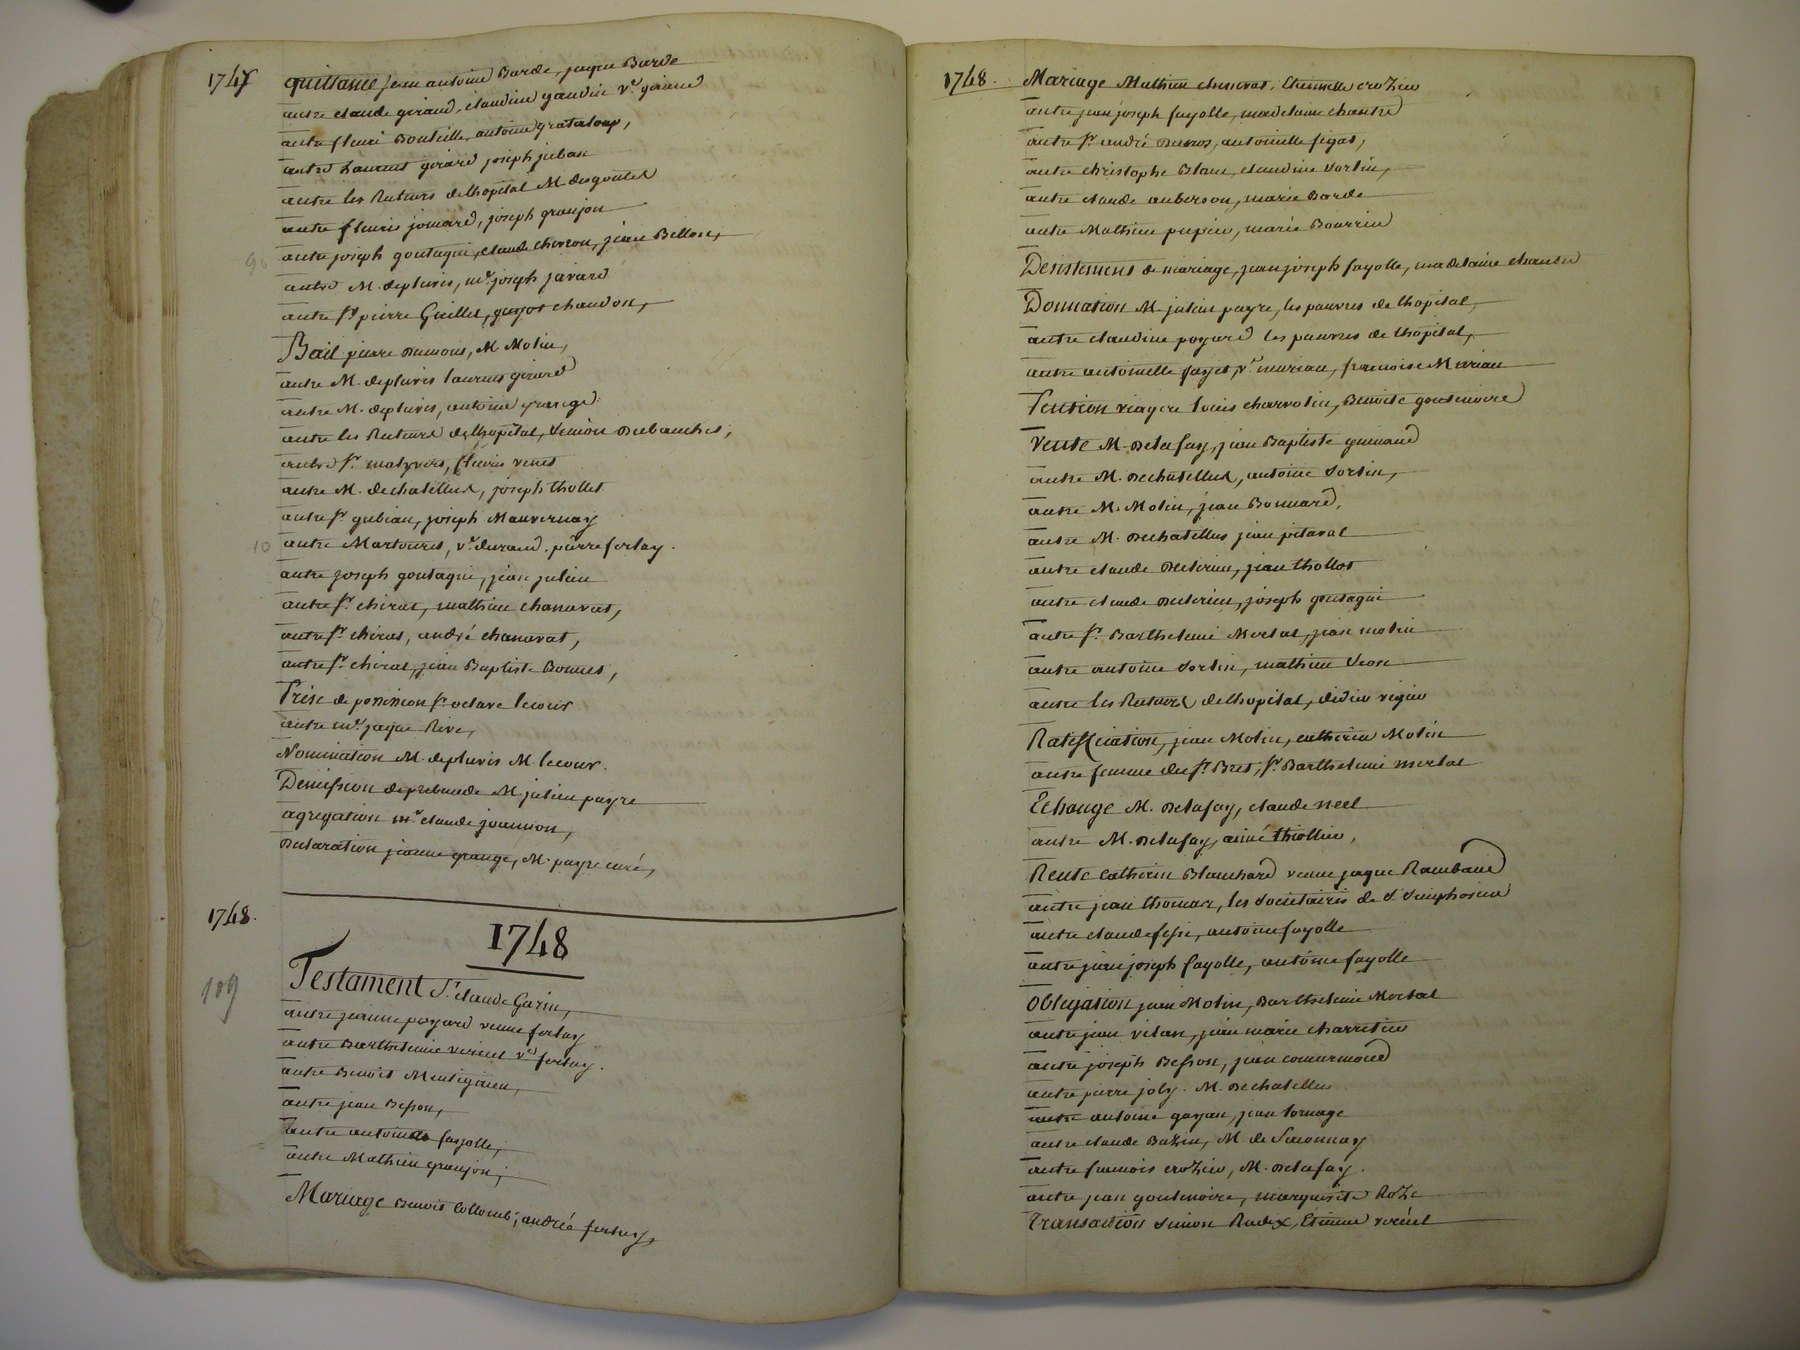 1747 quittance jean antoine Barde, jaque Barde
autre claude giraud, claudine gaudin v.e giraud
autre fleuri Bouteille, antoine grataloup,
autre Laurent girard joseph juban
autre les Recteurs delhopital M. desgoutes
autre fleurie jomard, joseph granjon
90 autre joseph goutagni, claude chevron, jean Bellon,
autre M. depluvis, m.e joseph javard
autre s.r pierre Guillet, guyot chaudon,
Bail pierre Dumons, M. Molin,
autre M. depluvis laurent girard
autre M. depluvis, antoine grange
autre les Recteurs delhopital, simeon Debauches,
autre s.r matyvers, fleurie venet
autre M. dechatellus, joseph thollet
autre s.r gubian, joseph Mauvernay
10 autre Martouret, v.e durand. pierre ferlay.
autre joseph goutagni, jean julien
autre s.r chirat, mathieu chanavat,
autre s.r chirat, andré chanavat,
autre s.r chirat, jean Baptiste Bonnet,
Prise de possession s.r octave lecour
autre m.e jaque Rive,
Nomination M. depluvis M. lecour.
Demission deprebende M. julien payre
agregation m.e claude joannon,
Declaration jeanne grange, M. payre curé,
1748.
1748
109
Testament S.r claude Garin,
autre jeanne poyard veuve ferlay
autre Barthelemie vericel v.e ferlay.
autre Benoit
autre jean Besson,
autre antoine fayolle,
autre Mathieu granjon,
Mariage Benoit Collomb, andréé ferlay,
1748. Mariage Mathieu chanavat, Etiennette crozier
autre jean joseph fayolle, madelaine chantre
autre s.r andré antoinette figat,
autre christophe Blanc, claudine Sortin,
autre claude auberson, marie Barde
autre Mathieu pupier, marie Bourrin
Desistement de mariage, jean joseph fayolle, madelaine chantre
Donnation M. julien payre, les pauvres de lhopital,
autre claudine poyard les pauvres de lhopital,
autre antoinette fayet, v.e murian, francoise Murian
Pention viagere louis charvolin, Benoite goutenoire
Vente M. Delafay, jean Baptiste guinand
autre M. Dechatellus, antoine Sortin,
autre M. Molin, jean Bonnard,
autre M. Dechatellus jean pitaval
autre claude jean thollot
autre claude joseph goutagni
autre s.r Barthelemi Mertat, jean molin
autre antoine Sortin, mathieu Veon
autre les Recteurs delhopital, didier vigier
Ratiffication, jean Molin, catherine Molin
autre femme du s.r Bret, s.r Barthelemi mertat
Echange M. Delafay, claude neel
autre M. Delafay, aimé thiollier,
Rente Catherin Blanchard veuve jaque Rambaud
autre jean thomas, les Societaires de S.t Simphorien
autre claude antoine fayolle
autre jean joseph fayolle, antoine fayolle
Obligation jean Molin, Barthelemi Mertat
autre jean vilan, jean marie charretier
autre joseph Besson, jean commarmond
autre pierre joly. M. Dechatellus
autre antoine gayan, jean tornage
autre claude Bazin, M. de Saconnay
autre francois crozier, M. Delafay.
autre jean goutenoire, marguerite Roze
Transaction simon Radix, Etienne vericel